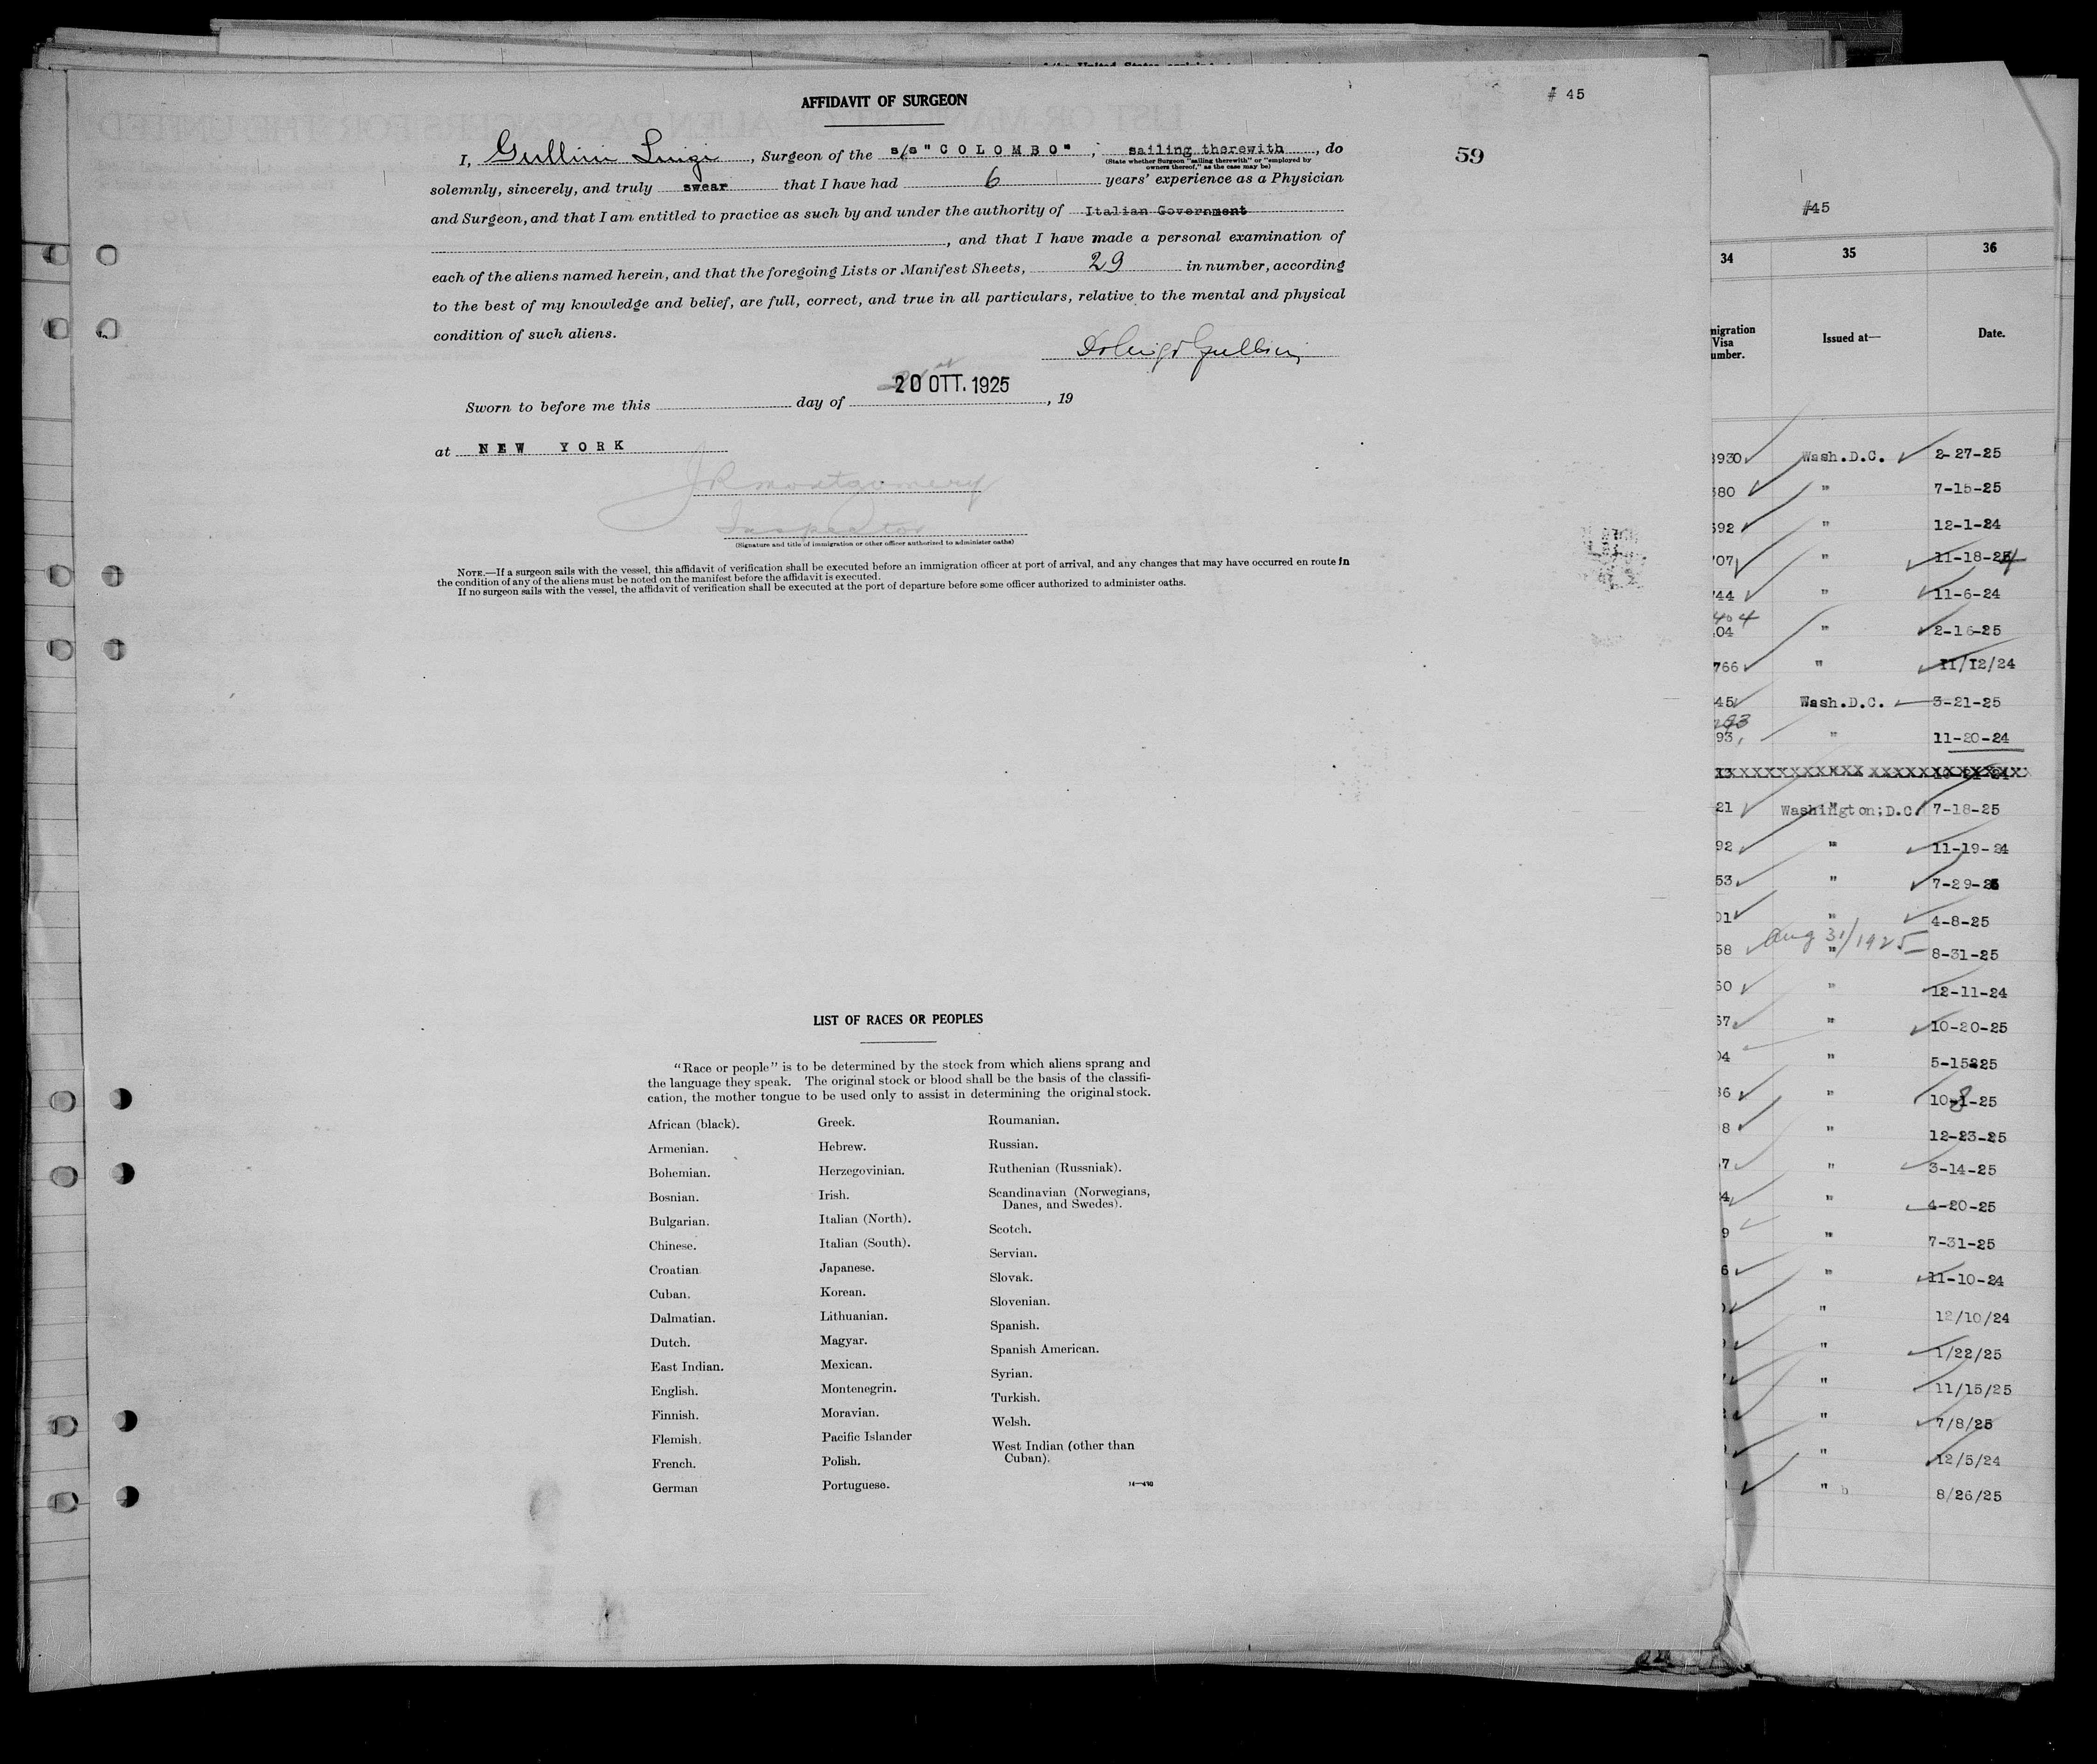 AFFIDAVIT OF SURGEON
# 45
59
I, Gullini Luigi, Surgeon of the s/s "COLOMBO", sailing therewith, do
(State whether Surgeon "sailing therewith" or "employed by
owners thereof," as the case may be)
solemnly, sincerely, and truly swear that I have had 6 years' experience as a Physician
and Surgeon, and that I am entitled to practice as such by and under the authority of Italian Government
, and that I have made a personal examination of
each of the aliens named herein, and that the foregoing Lists or Manifest Sheets, 29 in number, according
to the best of my knowledge and belief, are full, correct, and true in all particulars, relative to the mental and physical
condition of such aliens.
Dr Luigi Gullini
20 OTT. 1925
Sworn to before me this day of , 19
at NEW YORK
J R Montgomery
Inspector
(Signature and title of immigration or other officer authorized to administer oaths)
NOTE.—If a surgeon sails with the vessel, this affidavit of verification shall be executed before an immigration officer at port of arrival, and any changes that may have occurred en route in
the condition of any of the aliens must be noted on the manifest before the affidavit is executed.
If no surgeon sails with the vessel, the affidavit of verification shall be executed at the port of departure before some officer authorized to administer oaths.
LIST OF RACES OR PEOPLES
"Race or people" is to be determined by the stock from which aliens sprang and
the language they speak. The original stock or blood shall be the basis of the classifi-
cation, the mother tongue to be used only to assist in determining the original stock.
African (black).
Armenian.
Bohemian.
Bosnian.
Bulgarian.
Chinese.
Croatian
Cuban.
Dalmatian.
Dutch.
East Indian.
English.
Finnish.
Flemish.
French.
German
Greek.
Hebrew.
Herzegovinian.
Irish.
Italian (North).
Italian (South).
Japanese.
Korean.
Lithuanian.
Magyar.
Mexican.
Montenegrin.
Moravian.
Pacific Islander
Polish.
Portuguese.
Roumanian.
Russian.
Ruthenian (Russniak).
Scandinavian (Norwegians,
Danes, and Swedes).
Scotch.
Servian.
Slovak.
Slovenian.
Spanish.
Spanish American.
Syrian.
Turkish.
Welsh.
West Indian (other than
Cuban).
14—430
#45
34 35 36
migration
Visa
umber.
Issued at—
Date.
930 Wash.D.C. 2-27-25
80 " 7-15-25
92 " 12-1-24
07 " 11-18-24
44 " 11-6-24
404
04 " 2-16-25
766 " 11/12/24
45 Wash.D.C. 3-21-25
93 " 11-20-24
21 Washington;D.C. 7-18-25
92 " 11-19-24
53 " 7-29-25
01 " 4-8-25
Aug 31/1925
58 " 8-31-25
60 " 12-11-24
57 " 10-20-25
04 " 5-15-25
36 " 10-1-25
8 " 12-23-25
7 " 3-14-25
4 " 4-20-25
9 " 7-31-25
6 " 11-10-24
" 12/10/24
" 1/22/25
" 11/15/25
" 7/8/25
" 12/5/24
" 8/26/25